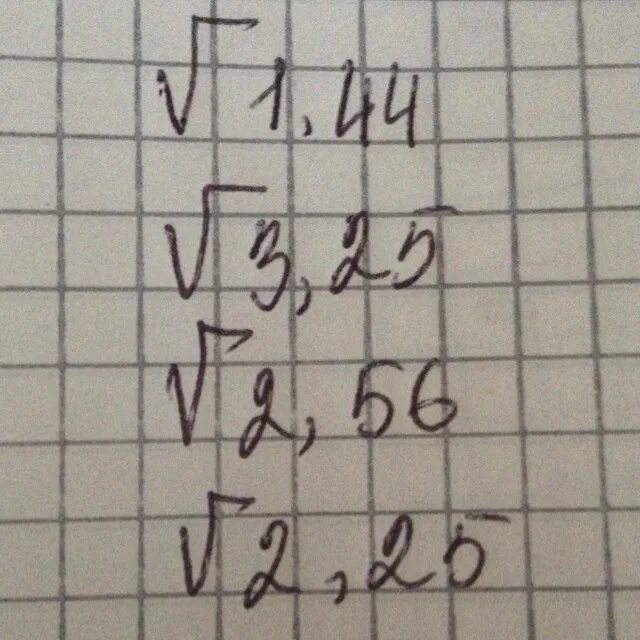 √1,44
√3,25
√2,56
√2,25